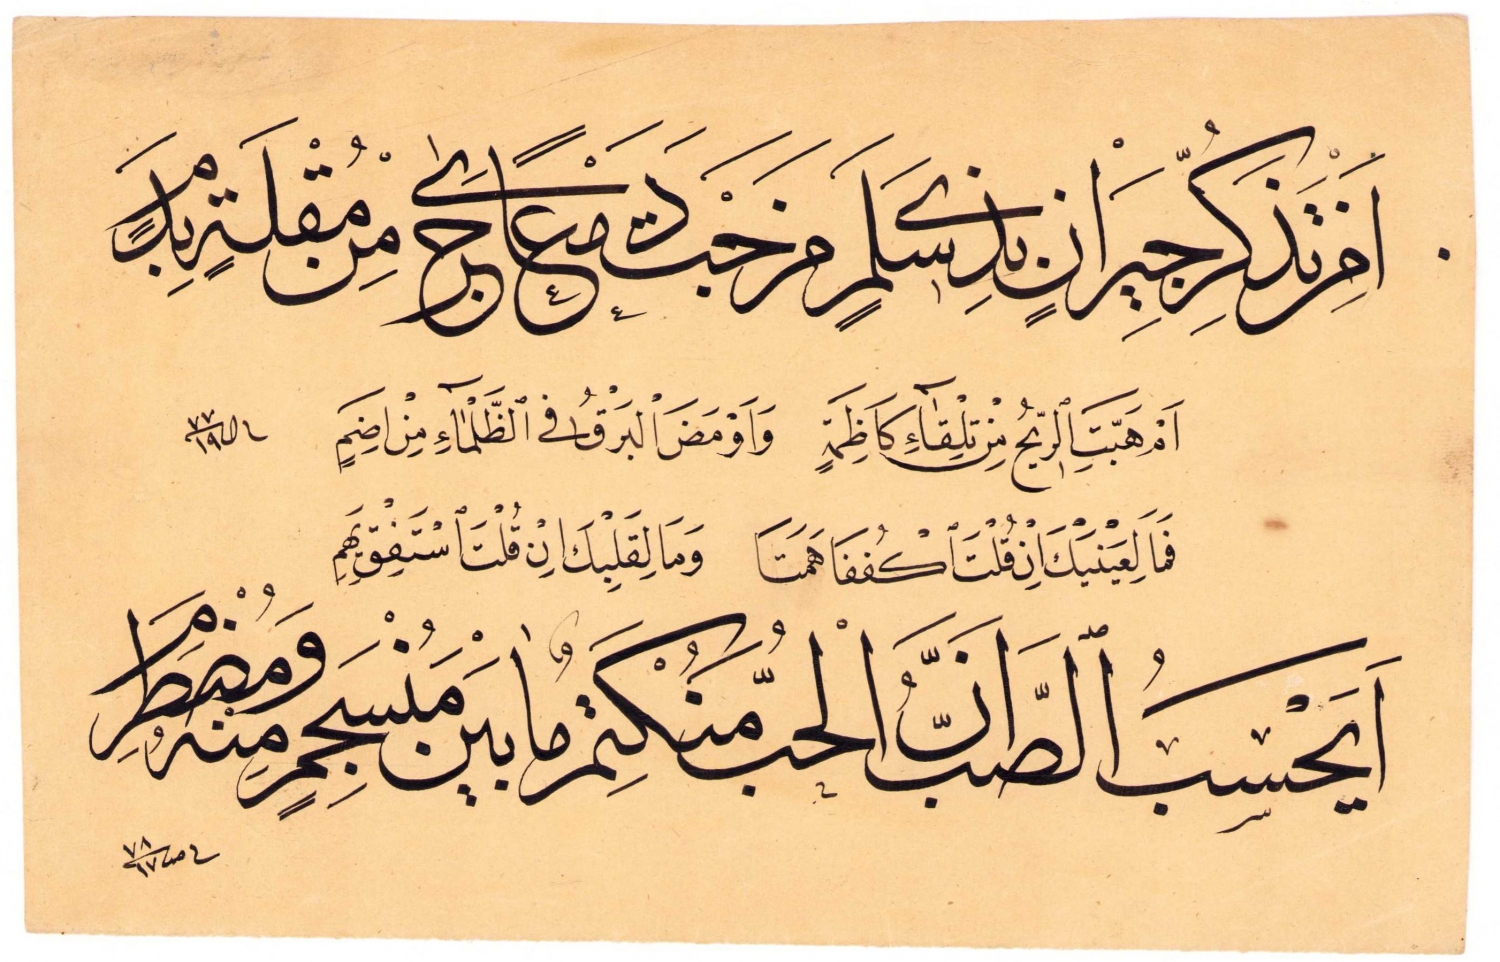 اَمِنْ تَذَكُّرِ جِيرَانٍ بِذِي سَلَمٍ مَزَجْتَ دَمْعًا جَرٰى مِنْ مُقْلَةٍ بِدَمٍ
اَمْ هَبَّتِ الرِّيحُ مِنْ تِلْقَٓاءِ كَاظِمَةٍ وَاَوْمَضَ الْبَرْقُ فِي الظَّلْمَٓاءِ مِنْ اِضَمٍ
فَمَا لِعَيْنَيْكَ اِنْ قُلْتَ اكْفُفَا هَمَتَا وَمَا لِقَلْبِكَ اِنْ قُلْتَ اسْتَفِقْ يَهِمِ
اَيَحْسَبُ الصَّبُّ اَنَّ الْحُبَّ مُنْكَتِمٌ مَا بَيْنَ مُنْسَجِمٍ مِنْهُ وَمُضْطَرِمِ